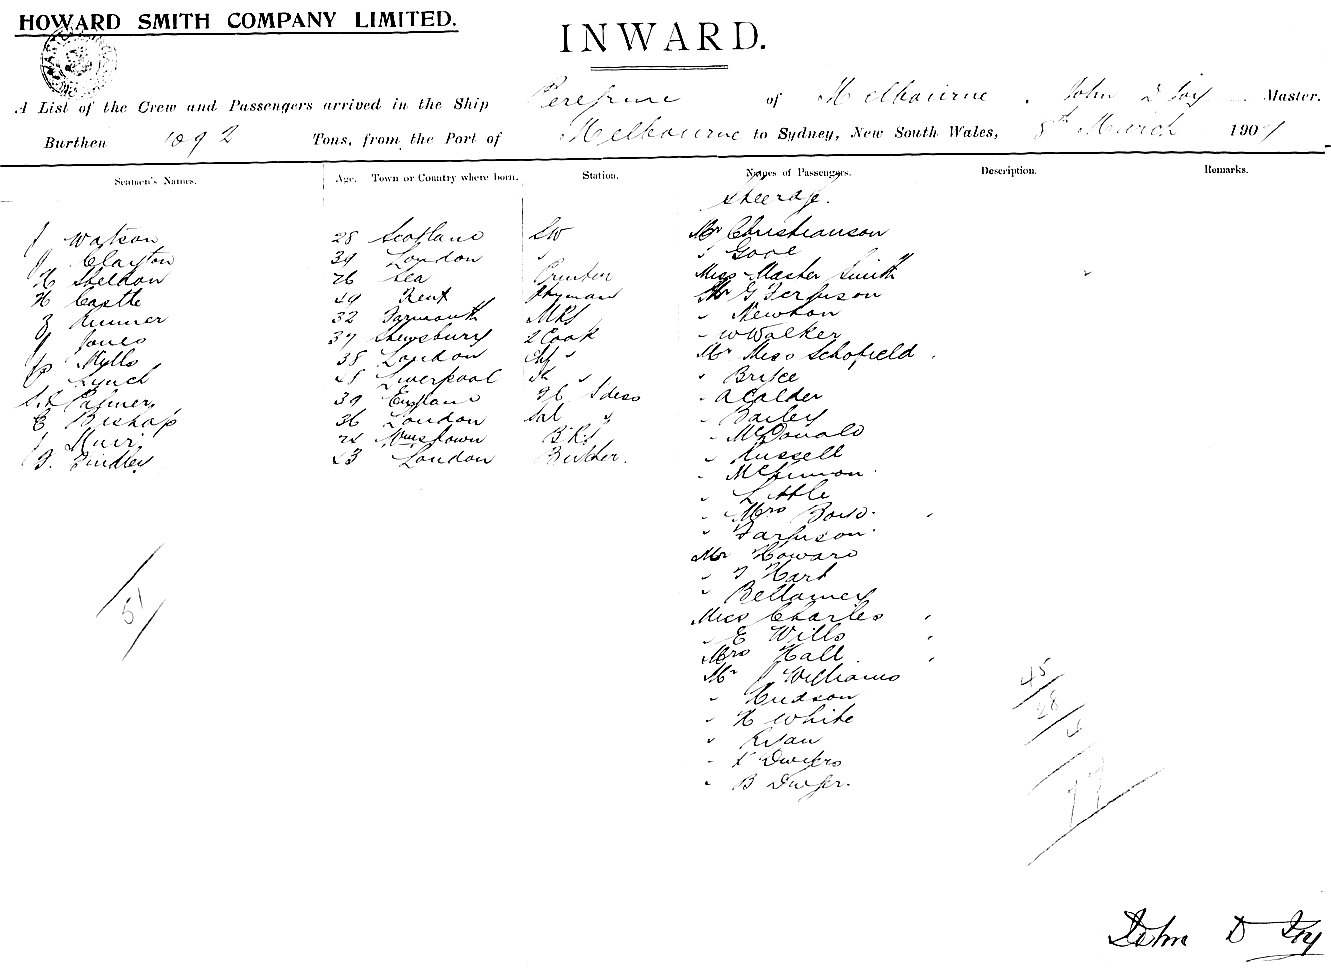 HOWARD SMITH COMPANY LIMITED.
INWARD.
A List of the Crew and Passengers arrived in the Ship Peregrine of Melbourne, John D Foy Master.
Burthen 1092 Tons, from the Port of Melbourne to Sydney, New South Wales, 8th March 1907
Seamen's Names. Age. Town or Country where born. Station. Names of Passengers. Description. Remarks.
Steerage.
J Watson 28 Scotland SW Mr Christianson
J Clayton 34 London " " Gore
H Sheldon 26 Sea Printer Miss Master Smith
H Castle 29 Kent Ptyman Mr G Ferguson
Runner 32 Yarmouth MRS " Newton
J Jones 37 Shewsbury 2 Cook " W Walker
Mylls 38 London " Mr Miss Schofield
P Lynch 28 Liverpool " " Bryce
Palmer 39 England " A Calder
E Bishop 36 London Sal " " Bailey
J Muir 24 BRS " McDonald
Findley 23 London Butcher. " Russell
" McKinnon
" Little
" Mrs Boyd
" Farguson
Mr Howard
" T Hart
" Bellamey
Miss Charles
" E Wills
Mrs Hall
Mr J Williams
" Hudson
" H White
" Ryan
" Dwyers
" B Dwyer.
51
45
28
4
77
John D Foy